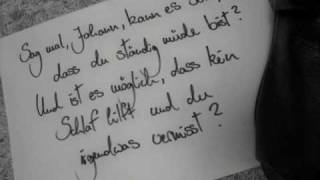 Sag mal, Johann, kann es
dass du ständig müde bist?
Und ist es möglich, dass kein
Schlaf hilft und du
irgendwas vermisst?